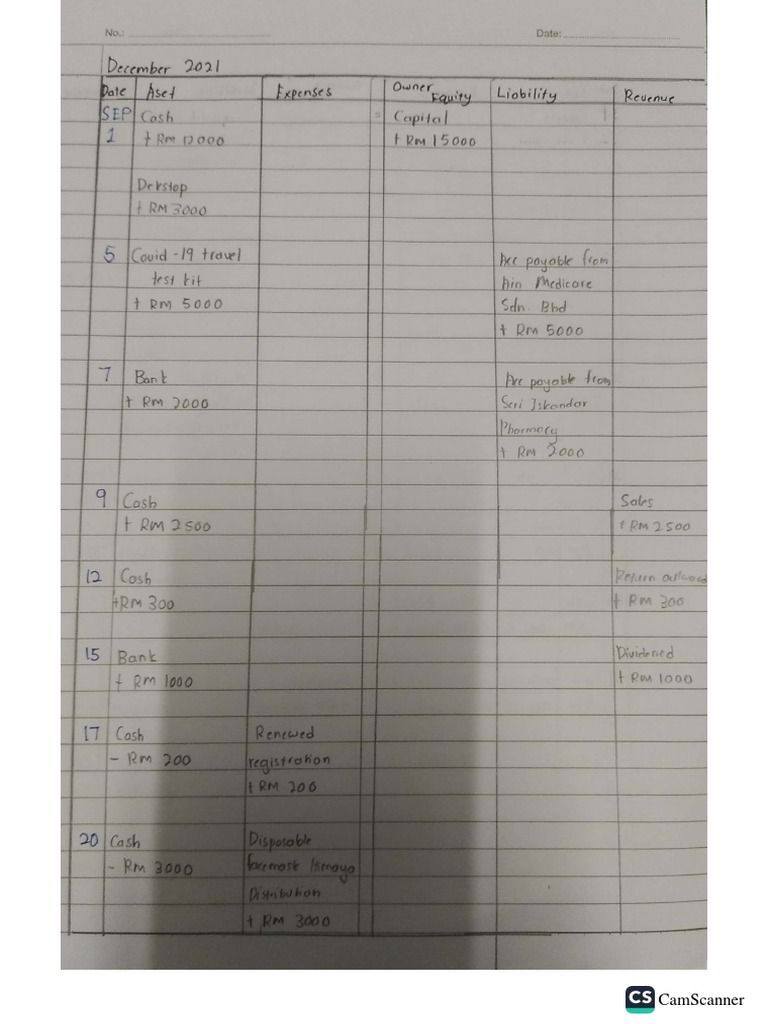 No.:
Date:
December 2021
Date Aset Expenses Owner Equity Liability Revenue
SEP Cash = Capital
1 + RM 12000 + RM 15000
Dekstop
+ RM 3000
5 Covid-19 travel Acc payable from
test kit Ain Medicare
+ RM 5000 Sdn. Bhd
+ RM 5000
7 Bank Acc payable from
+ RM 2000 Seri Iskandar
Pharmacy
+ RM 2000
9 Cash Sales
+ RM 2500 + RM 2500
12 Cash Return outward
+RM 300 + RM 300
15 Bank Dividened
+ RM 1000 + RM 1000
17 Cash Renewed
- RM 200 registration
+ RM 200
20 Cash Disposable
- RM 3000 facemask Himaya
Distribution
+ RM 3000
CS CamScanner